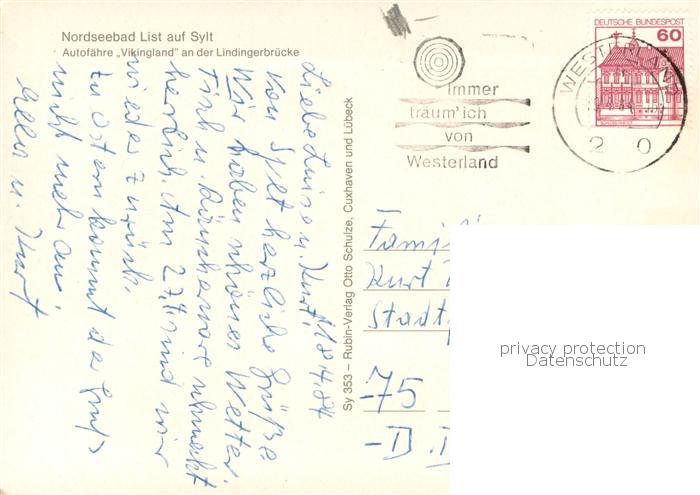 Nordseebad List auf Sylt
Autofähre „Vikingland" an der Lindingerbrücke
DEUTSCHE BUNDESPOST
60
WESTERLAND
2 0
Immer
träum' ich
von
Westerland
18.4.84
Liebe Luise u. Kurt,
von Sylt herzliche Grüße
Wir haben schönes Wetter.
Fisch u. Räucherware schmeckt
herrlich. Am 27.4 sind wir
wieder zurück.
Zu Ostern kommt der
nicht mehr an.
u. Kurt
Sy 353 – Rubin-Verlag Otto Schulze, Cuxhaven und Lübeck
Famil
Kurt
Stadt
-75
-D
privacy protection
Datenschutz